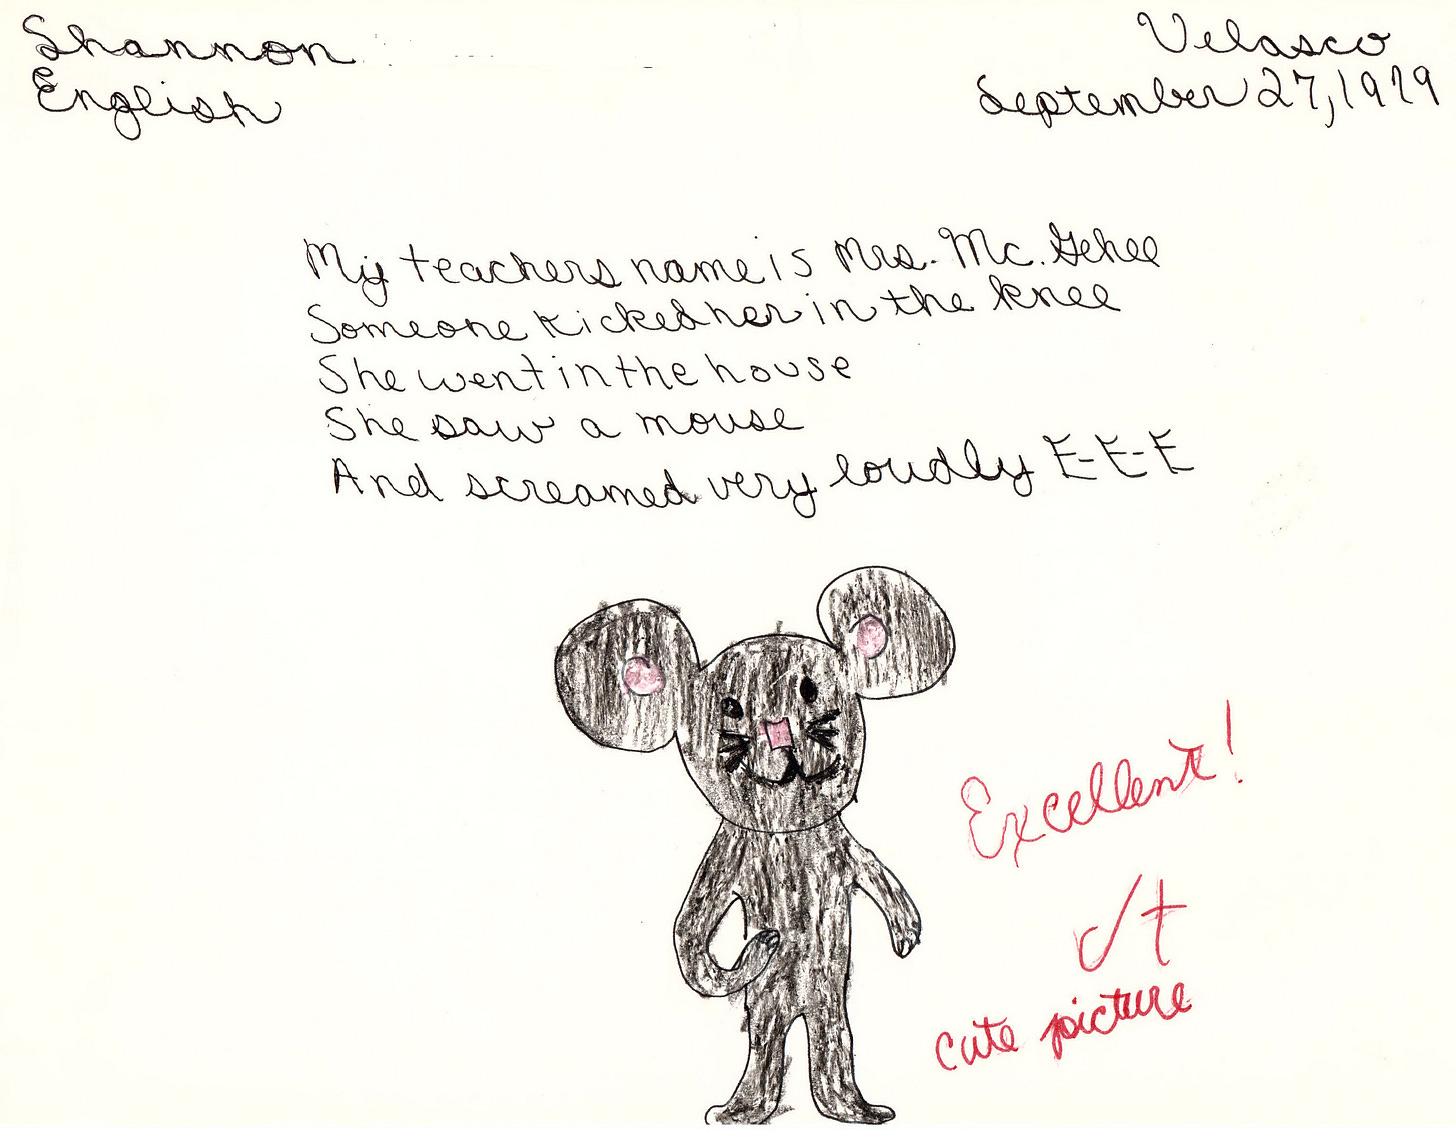 Shannon
Velasco
English
September 27, 1979
My teachers name is Mrs. Mc. Gehee
Someone kicked her in the knee
She went in the house
She saw a mouse
And screamed very loudly E-E-E
Excellent!
√+
cute picture